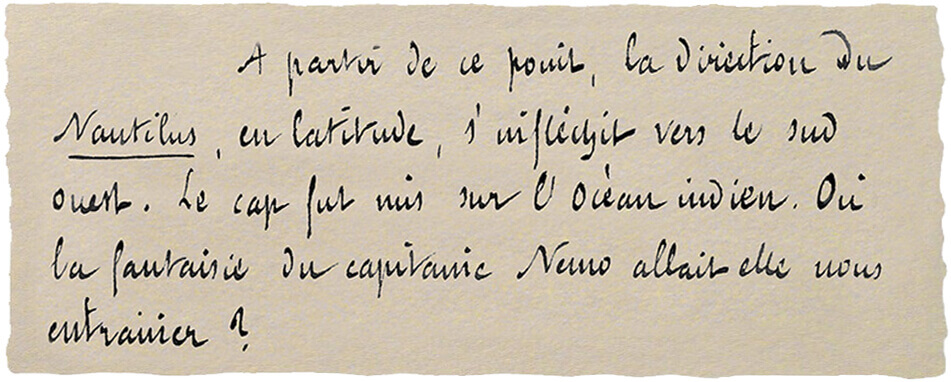 A partir de ce point, la direction du
Nautilus, en latitude, s'infléchit vers le sud
ouest. Le cap fut mis sur l'Océan indien. Où
la fantaisie du capitaine Nemo allait elle nous
entrainer ?